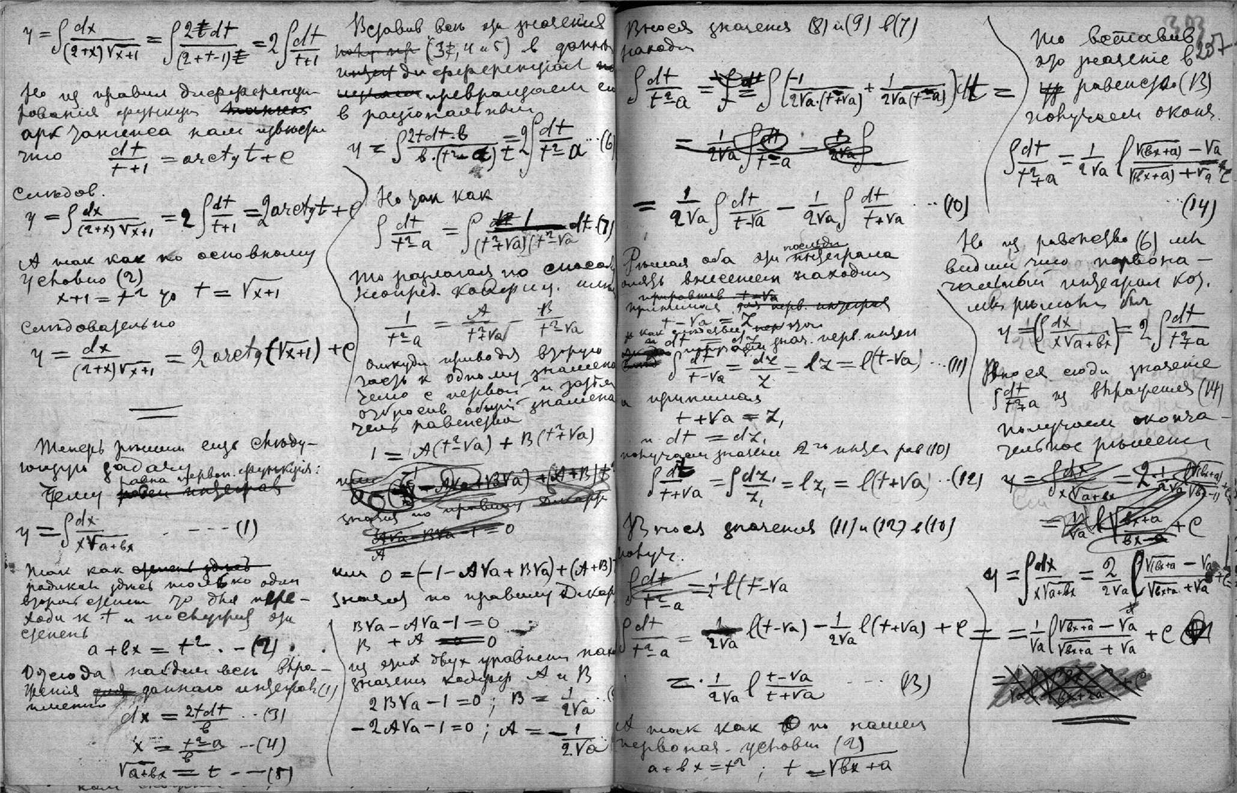 y = ∫ dx/((2+x)√x+1) = ∫ 2t dt/((2+t-1)t) = 2∫ dt/(t+1)
Но из правил дифференци-
рования функции
арк тангенса нам известно
что dt/(t+1) = arctg t + C
Следов.
y = ∫ dx/((2+x)√x+1) = 2∫ dt/(t+1) = 2 arctg t + C
А так как по основному
условию (2)
x+1 = t² то t = √x+1
Следовательно
y = dx/((2+x)√x+1) = 2 arctg(√x+1) + C
Теперь решим еще следу-
ющую задачу
Чему равна первон. функция:
y = ∫ dx/(x√a+bx) ---- (1)
Так как
радикал здесь только один
второй степени то для пере-
хода к t и
степень
a+bx = t² -- (2)
Отсюда найдем все выра-
жения данного интеграла (1)
именно
dx = 2tdt/b --- (3)
x = (t²-a)/b --- (4)
√a+bx = t --- (5)
Вставив все эти значения
(3, 4 и 5) в данный
дифференциал
превращаем его
в рациональный
y = ∫ 2tdt·b/(b·(t²-a)t) = 2∫ dt/(t²-a) --- (6)
Но так как
∫ dt/(t²-a) = ∫ 1/((t+√a)(t-√a)) dt (7)
то разлагая по способу
неопред. коэффиц. имеем
1/(t²-a) = A/(t+√a) - B/(t-√a)
откуда приводя вторую
часть к одному знамена-
телю с первой и затем
отбросив общий знамена-
тель равенства
1 = A(t-√a) + B(t+√a)
или 0 = (-1-A√a+B√a)+(A+B)
значит по правилу Декарт
B√a - A√a - 1 = 0
B + A = 0
из этих двух уравнений нах
значения коэффиц A и B
2B√a - 1 = 0 ; B = 1/(2√a)
-2A√a - 1 = 0 ; A = -1/(2√a)
Внося значения (8) и (9) в (7)
находим
∫ dt/(t²-a) = ∫ (-1/(2√a·(t+√a)) + 1/(2√a(t-√a))) dt =
= 1/(2√a) ∫ dt/(t-√a) - 1/(2√a) ∫ dt/(t+√a) --- (10)
Решая оба эти последн. интеграла
находим
t-√a = z
dt = dz
∫ dt/(t-√a) = dz/z = lz = l(t-√a) --- (11)
а принимая
t+√a = z₁
и dt = dz₁
получаем значение 2го интегр рав (10)
∫ dt/(t+√a) = ∫ dz₁/z₁ = lz₁ = l(t+√a) --- (12)
Внося значения (11) и (12) в (10)
получ.
∫ dt/(t²-a) = 1/(2√a) l(t-√a) - 1/(2√a) l(t+√a) + C =
= 1/(2√a) l (t-√a)/(t+√a) ---- (13)
А так как по нашем
первонач. условии (2)
a+bx = t² ; t = √bx+a
207
то вставив
это значение в
равенство (13)
получаем оконч.
∫ dt/(t²-a) = 1/(2√a) l (√(bx+a) - √a)/(√(bx+a) + √a)
--- (14)
Но из равенства (6) мы
видим что первона-
чальный интеграл кот.
мы решали был
y = ∫ dx/(x√a+bx) = 2∫ dt/(t²-a)
Внося сюда значение
∫ dt/(t²-a) из выражения (14)
получаем оконча-
тельное решение
y = ∫ dx/(x√a+bx) = 2/(2√a) l (√bx+a - √a)/(√bx+a + √a)
= 1/√a l (√bx+a - √a)/(√bx+a + √a) + C